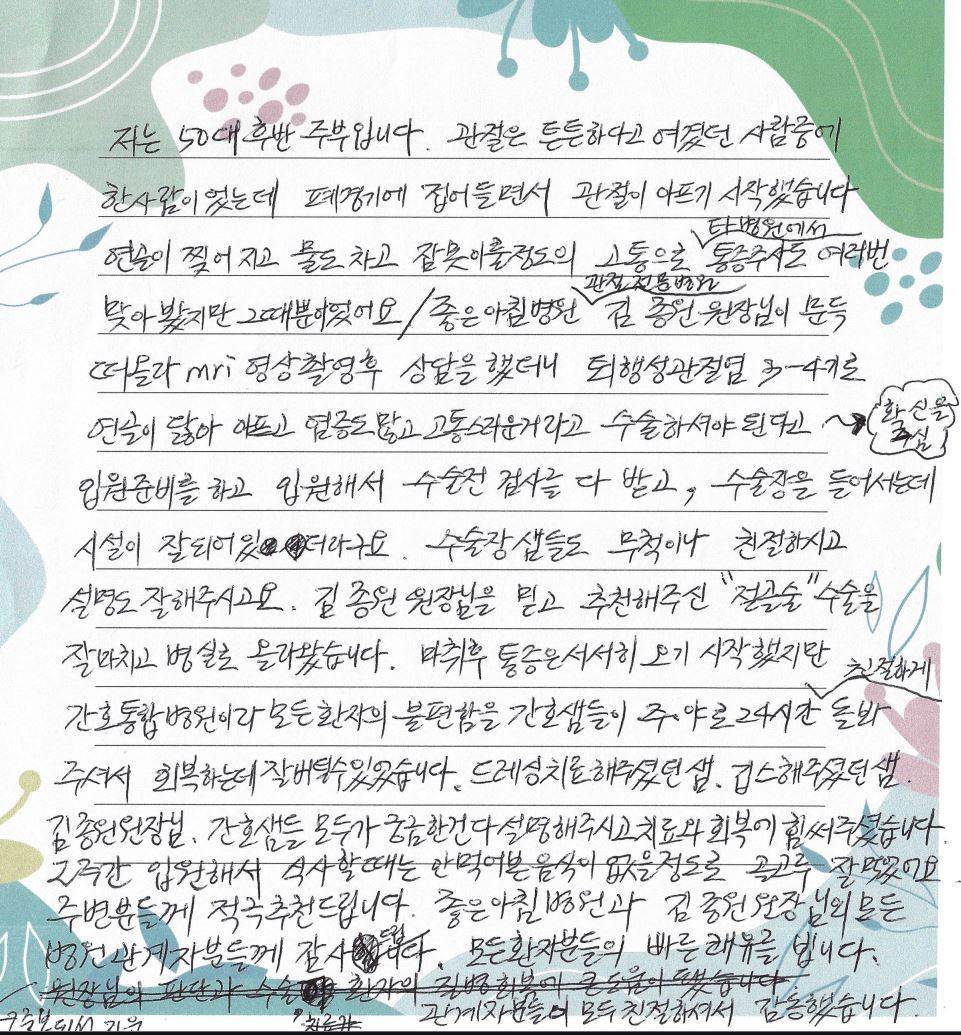 저는 50대 후반 주부입니다. 관절은 튼튼하다고 여겼던 사람중에
한사람이었는데 폐경기에 접어들면서 관절이 아프기 시작했습니다
타병원에서
연골이 찢어지고 물도차고 잠못이룰정도의 고통으로 통증주사도 여러번
관절전문병원
맞아봤지만 그때뿐이었어요 / 좋은아침병원 김종원 원장님이 문득
떠올라 mri 영상촬영후 상담을 했더니 퇴행성관절염 3-4기로
연골이 닳아 아프고 염증도많고 고통스러운거라고 수술하셔야 된다고
확신을
주심
입원준비를 하고 입원해서 수술전 검사를 다 받고, 수술장을 들어서는데
시설이 잘되어있더라구요. 수술장샘들도 무척이나 친절하시고
설명도 잘해주시고요. 김종원 원장님을 믿고 추천해주신 "절골술"수술을
잘마치고 병실로 올라왔습니다. 마취후 통증은서서히 오기 시작했지만
친절하게
간호통합병원이라 모든환자의 불편함을 간호샘들이 주.야로 24시간 돌봐
주셔서 회복하는데잘버틸수있었습니다. 드레싱치료해주셨던샘. 깁스해주셨던샘.
김종원원장님. 간호샘들 모두가 궁금한건다설명해주시고치료와 회복에 힘써주셨습니다.
2주간 입원해서 식사할때는 안먹어본음식이 없을정도로 골고루 잘먹었어요
주변분들께 적극추천드립니다. 좋은아침병원과 김종원원장님외모든
병원관계자분들께 감사드립니다. 모든환자분들의 빠른쾌유를 빕니다.
원장님의 판단과 수술 환자의 질병회복에 큰도움이 됐습니다
관계자분들이 모두친절하셔서 감동했습니다.